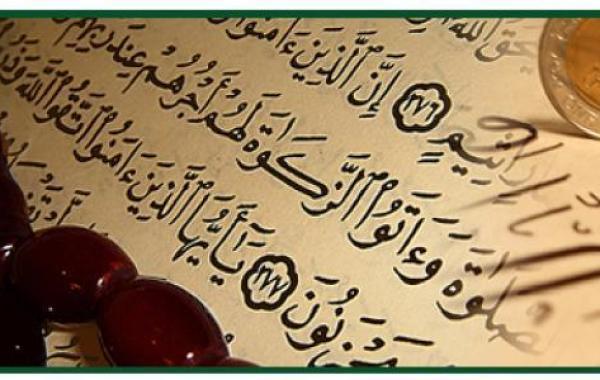 ٱللَّهُ
أَثِيمٍ ٢٧٦ إِنَّ ٱلَّذِينَ ءَامَنُوا۟
صَّلَوٰةَ وَءَاتَوُا۟ ٱلزَّكَوٰةَ لَهُمْ أَجْرُهُمْ عِندَ رَبِّهِمْ
يَحْزَنُونَ ٢٧٧ يَٰٓأَيُّهَا ٱلَّذِينَ ءَامَنُوا۟ ٱتَّقُوا۟ ٱللَّهَ وَذَرُ